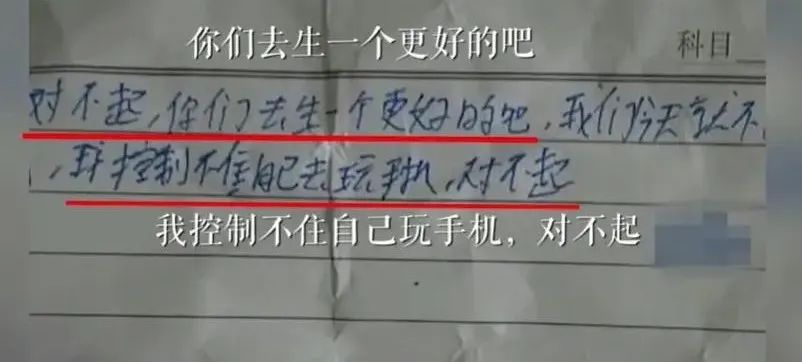 你们去生一个更好的吧
科目
对不起,你们去生一个更好的吧,我们今天就不
,我控制不住自己去玩手机,对不起
我控制不住自己玩手机，对不起